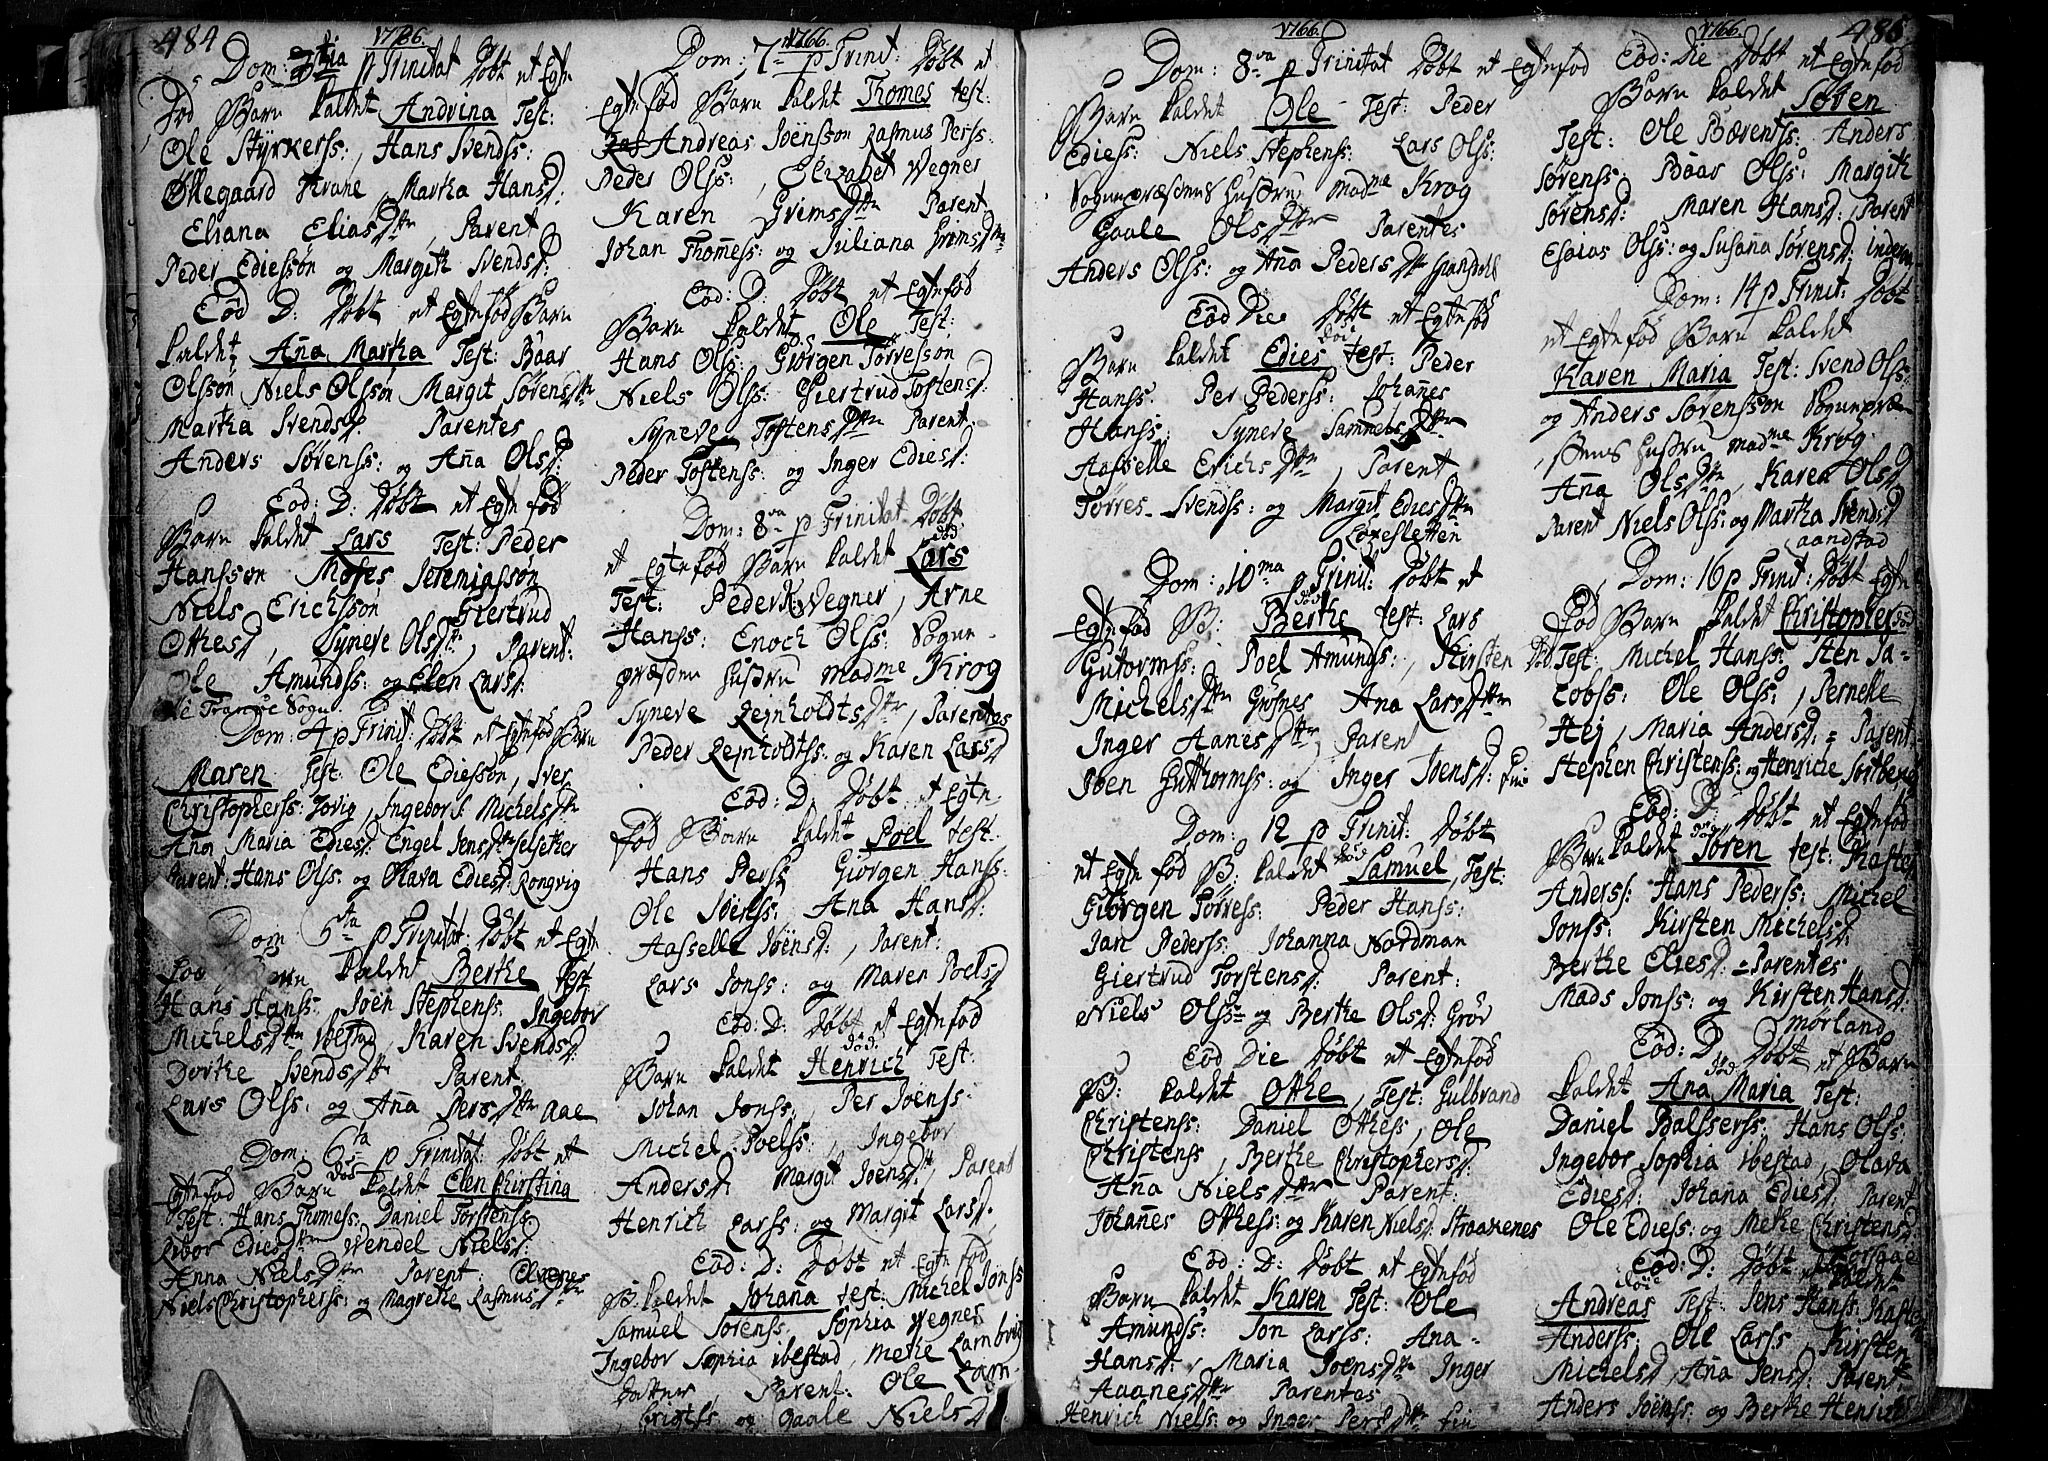 484
1766.
Dom: 3tia p Trinitat Døbt et Egte
fod Barn kaldet Andrina Test:
Ole Styrkerss:, Hans Svendss:
Ottegaard Krane, Martha Hansd:
Eliana Eliasdttr, Parent
Peder Ediessøn og Margith Svendsd:
Eod D: Døbt et Egtefød Barn
kaldet Aña Martha Test: Baar
Olssøn Niels Olssøn Margit Sørensdttr
Martha Svendsd. Parentes
Anders Sørenss: og Aña Olsd:
Eod: D: Døbt et Egtefød
Barn kaldet Lars Test: Peder
Hanssøn Moses Jeremiassøn
Niels Erichssøn Giertrud
Othesd, Syneve Olsdttr, Parent:
Ole Amundss: og Elen Larsd:
Tranøe Sogn
Dom: 4 p Trinit: Døbt et Egtefød Barn
Maren Test: Ole Ediessøn, Iver
Christopherss: Tovig, Ingebor Michelsdttr
Ana Maria Ediesd: Engel Jensdttr Selsether
Parent: Hans Olss: og Olava Ediesd: Rongvig
Dom: 5ta p Trinitat: Døbt et Egte
fød Barn kaldet Berthe Test
Hans Hanss: Joen Stephenss: Ingebor
Michelsdttr Ibestad, Karen Svendsd:
Dorthe Svendsdttr Parent
Lars Olss: og Aña Persdttr Aae
Dom: 6ta p Trinitat: Døbt et
Egtefød Barn død kaldet Elen Chirsting
Test: Hans Thomess: Daniel Torstenss:
Ediesdttr Wendel Nielsd:
Anna Nielsdttr Parent: Elvenes
Niels Christopherss: og Magrethe Rasmusdttr
1766.
Dom: 7de p Trinit: Døbt et
Egtefød Barn kaldet Thomes Test:
Andreas Joensson Rasmus Perss:
Peder Olss:, Elizabet Wegner
Karen Grimsdttr Parent
Johan Thomess: og Juliana Grimsdttr
Eod: D: Døbt et Egtefød
Barn kaldet Ole Test:
Hans Olss: Giørgen Tørresson
Niels Olss: Giertrud Tostensd:
Syneve Tostensdttr Parent
Peder Tostenss: og Inger Ediesd:
Dom: 8va p Trinitat Døbt
et Egtefød Barn kaldet Lars død
Test: Peder K: Wegner, Arne
Hanss: Enoch Olss: Sogne-
præsten hustru Madme Krog
Syneve Reinholdtsdttr, Parentes
Peder Reinholdtss: og Karen Larsd
Eod: D: Døbt et Egte-
fød Barn kaldet Poel Test:
Hans Perss: Giørgen Hanss:
Ole Joenss: Ana Hansd:
Aasselle Joensd:, Parent:
Lars Jonss: og Maren Poelsd
Eod: D: Døbt et Egtefød
Barn kaldet Henrich død Test:
Johan Jonss:, Per Joenss:
Michel Poelss:, Ingebor
Andersd: Margit Joensdttr, Parent
Henrich Larss: og Margit Larsd.
Eod: D: Døbt et Egtefød
B: kaldet Johana Test: Michel Jonss
Samuel Sørenss: Sophia Wegner
Ingebor Sophia Ibestad, Methe Lambrig
datter, Parent: Ole Lam-
brigtss og Gaale Nielsd:
1766.
Dom: 8va p Trinitat Døbt et Egtefød
Barn kaldet Ole Test: Peder
Ediess: Niels Stephenss: Lars Olss:
Sognepræstens hustru Madme Krog
Gaale Olsdttr Parentes
Anders Olss: og Aña Pedersdttr
Eod Die Døbt et Egtefød
Barn kaldet Edies død Test: Peder
Hanss: Per Pederss: Johanes
Hanss: Syneve Samuelsdttr
Aasselle Erichsdttr, Parent
Tørres Svendss: og Margit Ediesdttr
Løxesletten
Dom: 10ma p Trinit: Døbt et
Egtefød B: Berthe død Test: Lars
Gutormss: Poel Amunds:, Kirsten
Michelsdttr Ana Larsdttr
Inger Hanesdttr Parent
Joen Gutthormss: og Inger Joensd:
Dom: 12 p Trinit: Døbt
et Egtefød B: kaldet Samuel død, Test:
Giørgen Tørress: Peder Hanss:
Jan Pederss: Johanna Nordman
Giertrud Torstensd: Parent:
Niels Olss: og Berthe Olsd: Grøv
Eod Die Døbt et Egtefød
B: kaldet Othe, Test: Gulbrand
Christenss: Daniel Othess, Ole
Christenss, Berthe Christophersd:
Ana Nielsdttr Parent:
Johanes Othess: og Karen Nielsd: Straaenes
Eod: D: Døbt et Egtefød
Barn kaldet Karen Test: Ole
Amundss: Jon Larss: Ana
Hansd:, Maria Joensdttr Inger
Aaanesdttr Parentes
Henrich Nielss: og Inger Persdttr
1766.
485
Eod: Die Døbt et Egtefød
Barn kaldet Søren
Test: Ole Bærentss: Anders
Sørenss: Baar Olss: Margith
Sørensd: Maren Hansd:, Parent
Esaias Olss: og Susaña Sørensd:
Dom: 14 p Trinit: Døbt
et Egtefød Barn kaldet
Karen Maria Test: Svend Olss:
og Anders Sørenssøn Sognepræ-
stens hustru Madme Krog
Aña Olsdttr, Karen Olsd
Parent Niels Olss: og Martha Svendsd
Aandstad
Dom: 16 p Trinit: Døbt Egte
fød Barn kaldet Christopher død
Test: Michel Hanss: Sten Ja-
cobss: Ole Olss:, Pernelle
Hej, Maria Andersd: = Parent
Stephen Christenss: og Henriche
Eod: D: Døbt et Egtefød
Barn kaldet Søren død Test: Kasten
Anderss: Hans Pederss: Michel
Jonss: Kirsten Michelsd:
Berthe Eliesd: = Parentes
Mads Jonss: og Kirsten Hansd:
Mørland
Eod: D: Døbt et Barn
kaldet Ana Maria død Test:
Daniel Balsserss: Hans Olss:
Ingebor Sophia Ibestad, Olava
Ediesd: Johana Ediesd Parent
Ole Ediess: og Methe Christensd
Eod: D: Døbt et kaldet
Andreas død Test: Jens Hanss: Kasten
Anderss: Ole Larss Kirsten
Michelsd, Aña Jensd: Parent
Anders Joenss: og Berthe